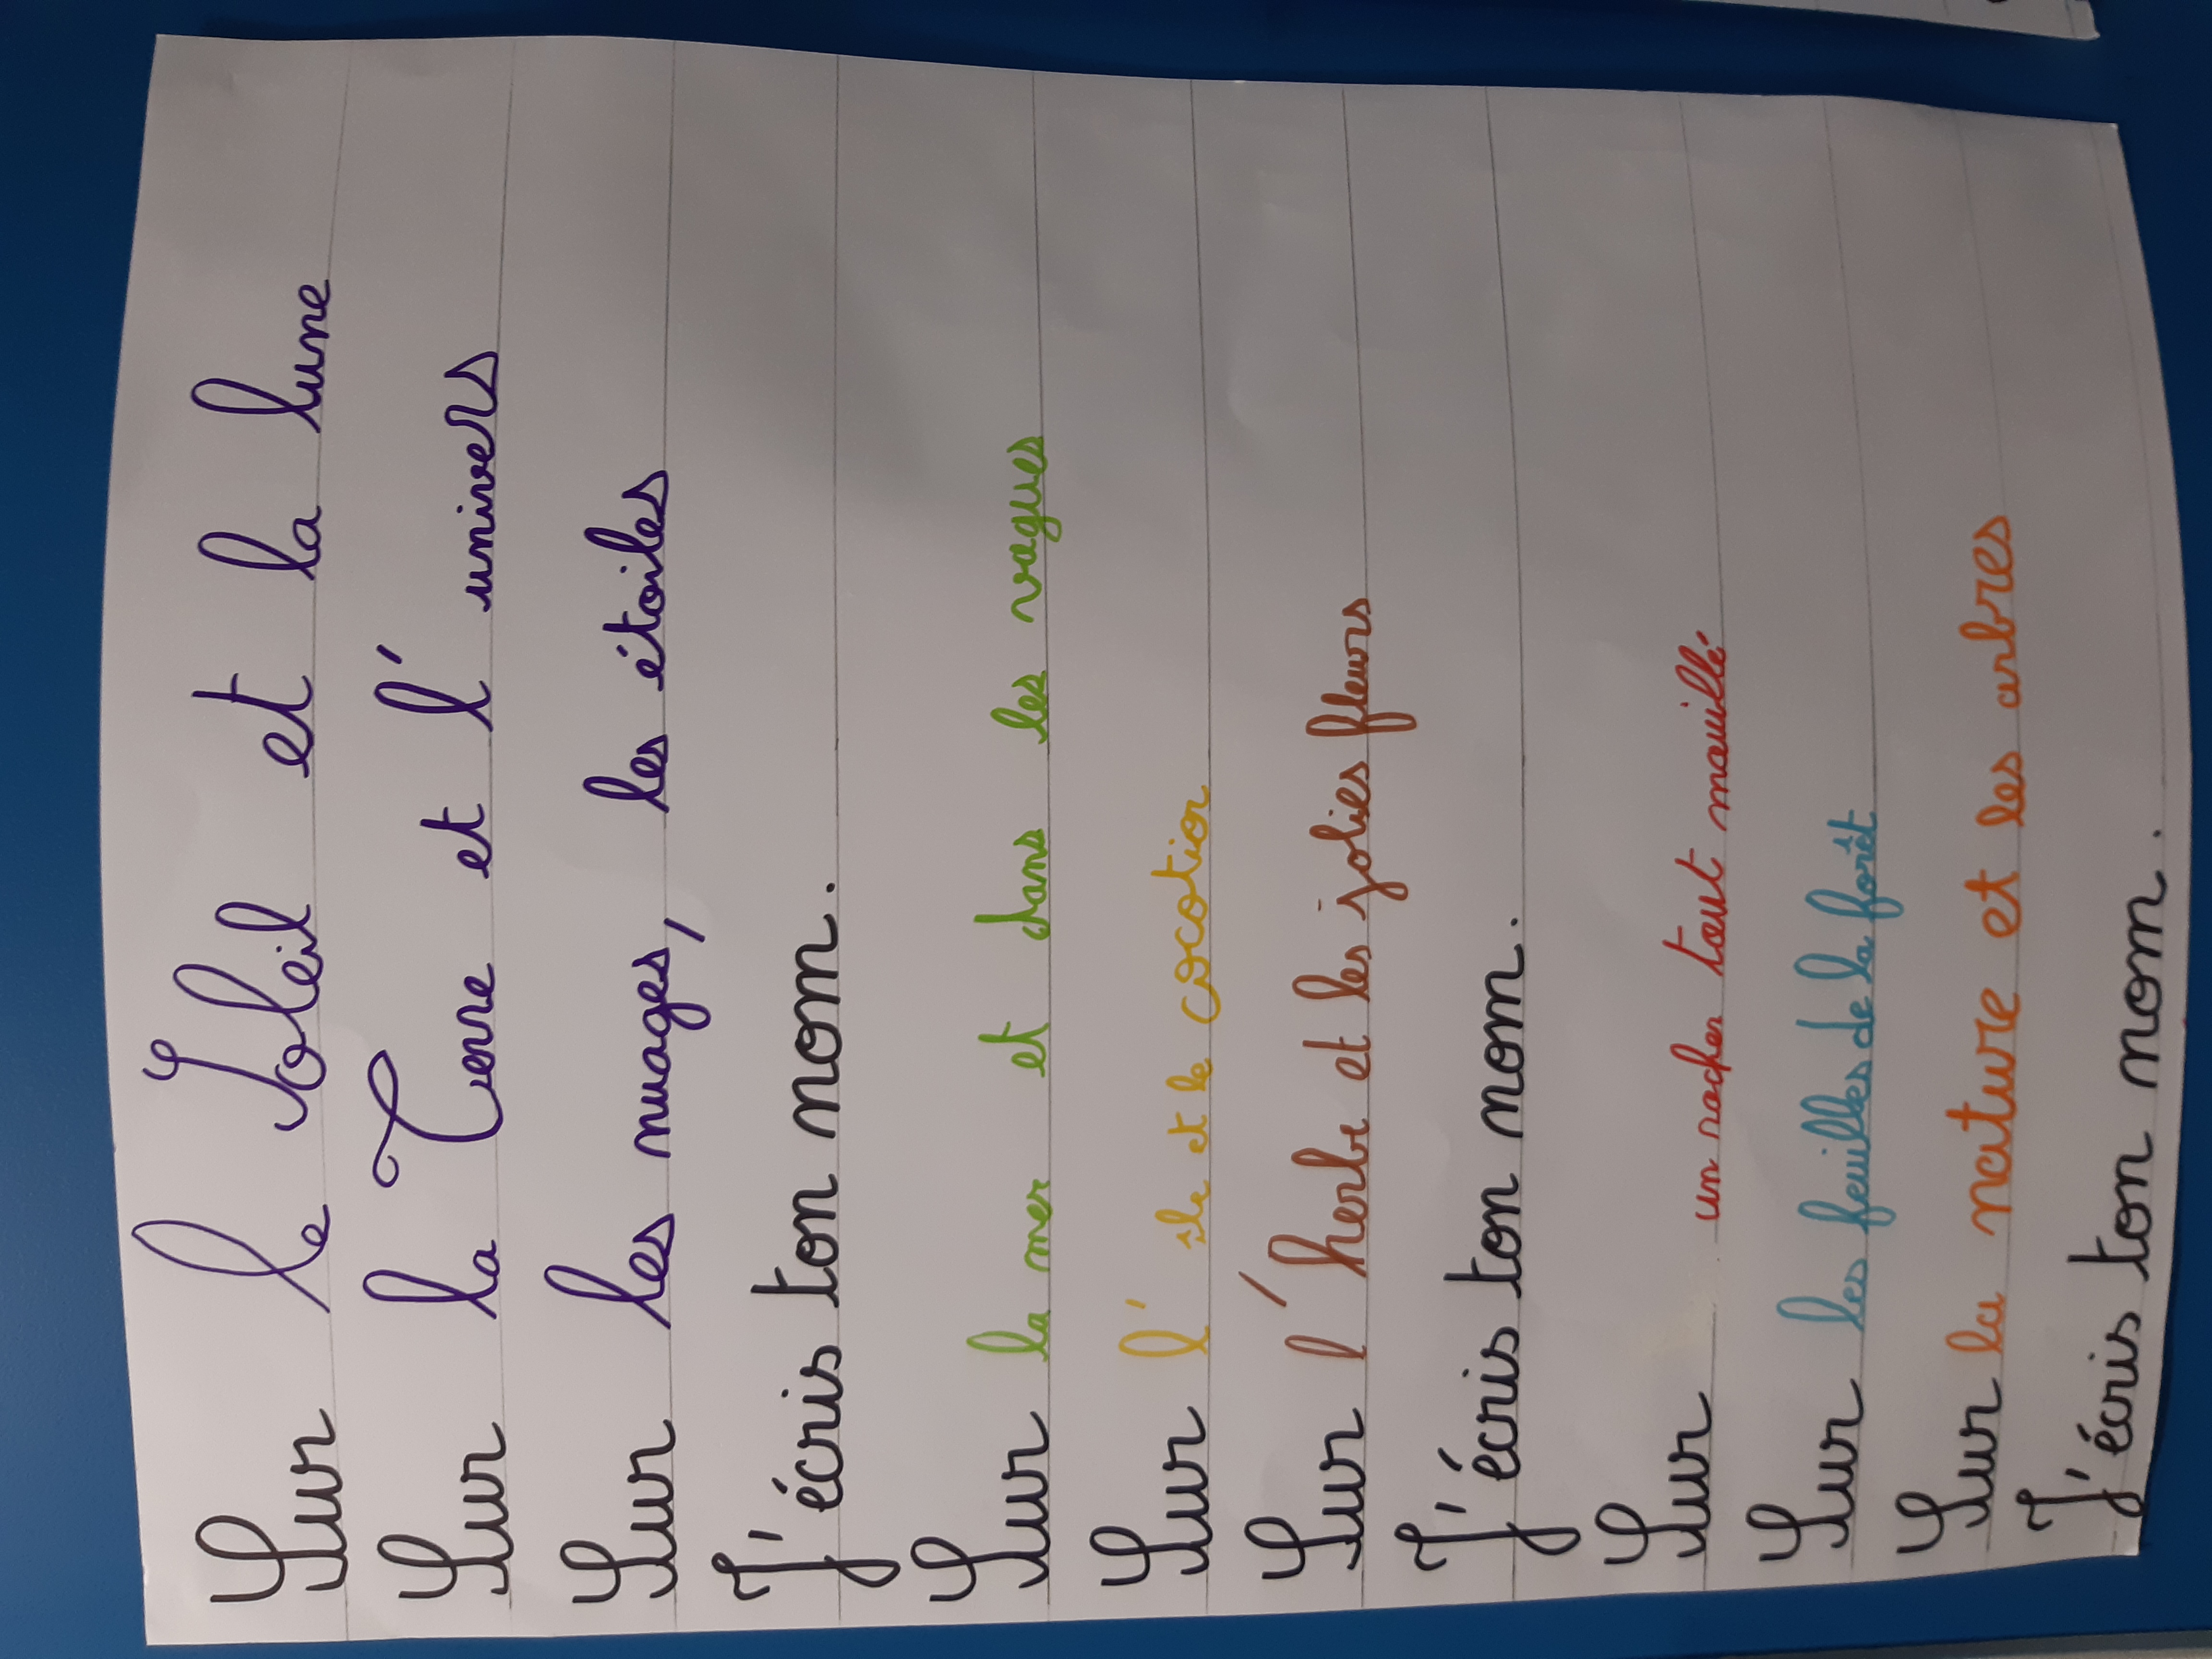 Sur le Soleil et la lune
Sur la Terre et l'univers
Sur les nuages, les étoiles
J'écris ton nom.
Sur la mer et dans les vagues
Sur l'ile et le cocotier
Sur l'herbe et les jolies fleurs
J'écris ton nom.
Sur un rocher tout mouillé
Sur les feuilles de la forêt
Sur la nature et les arbres
J'écris ton nom.